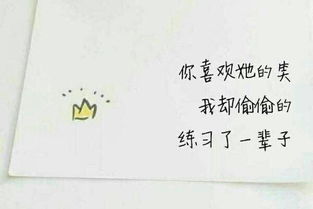 你喜欢她的笑
我却偷偷的
练习了一辈子